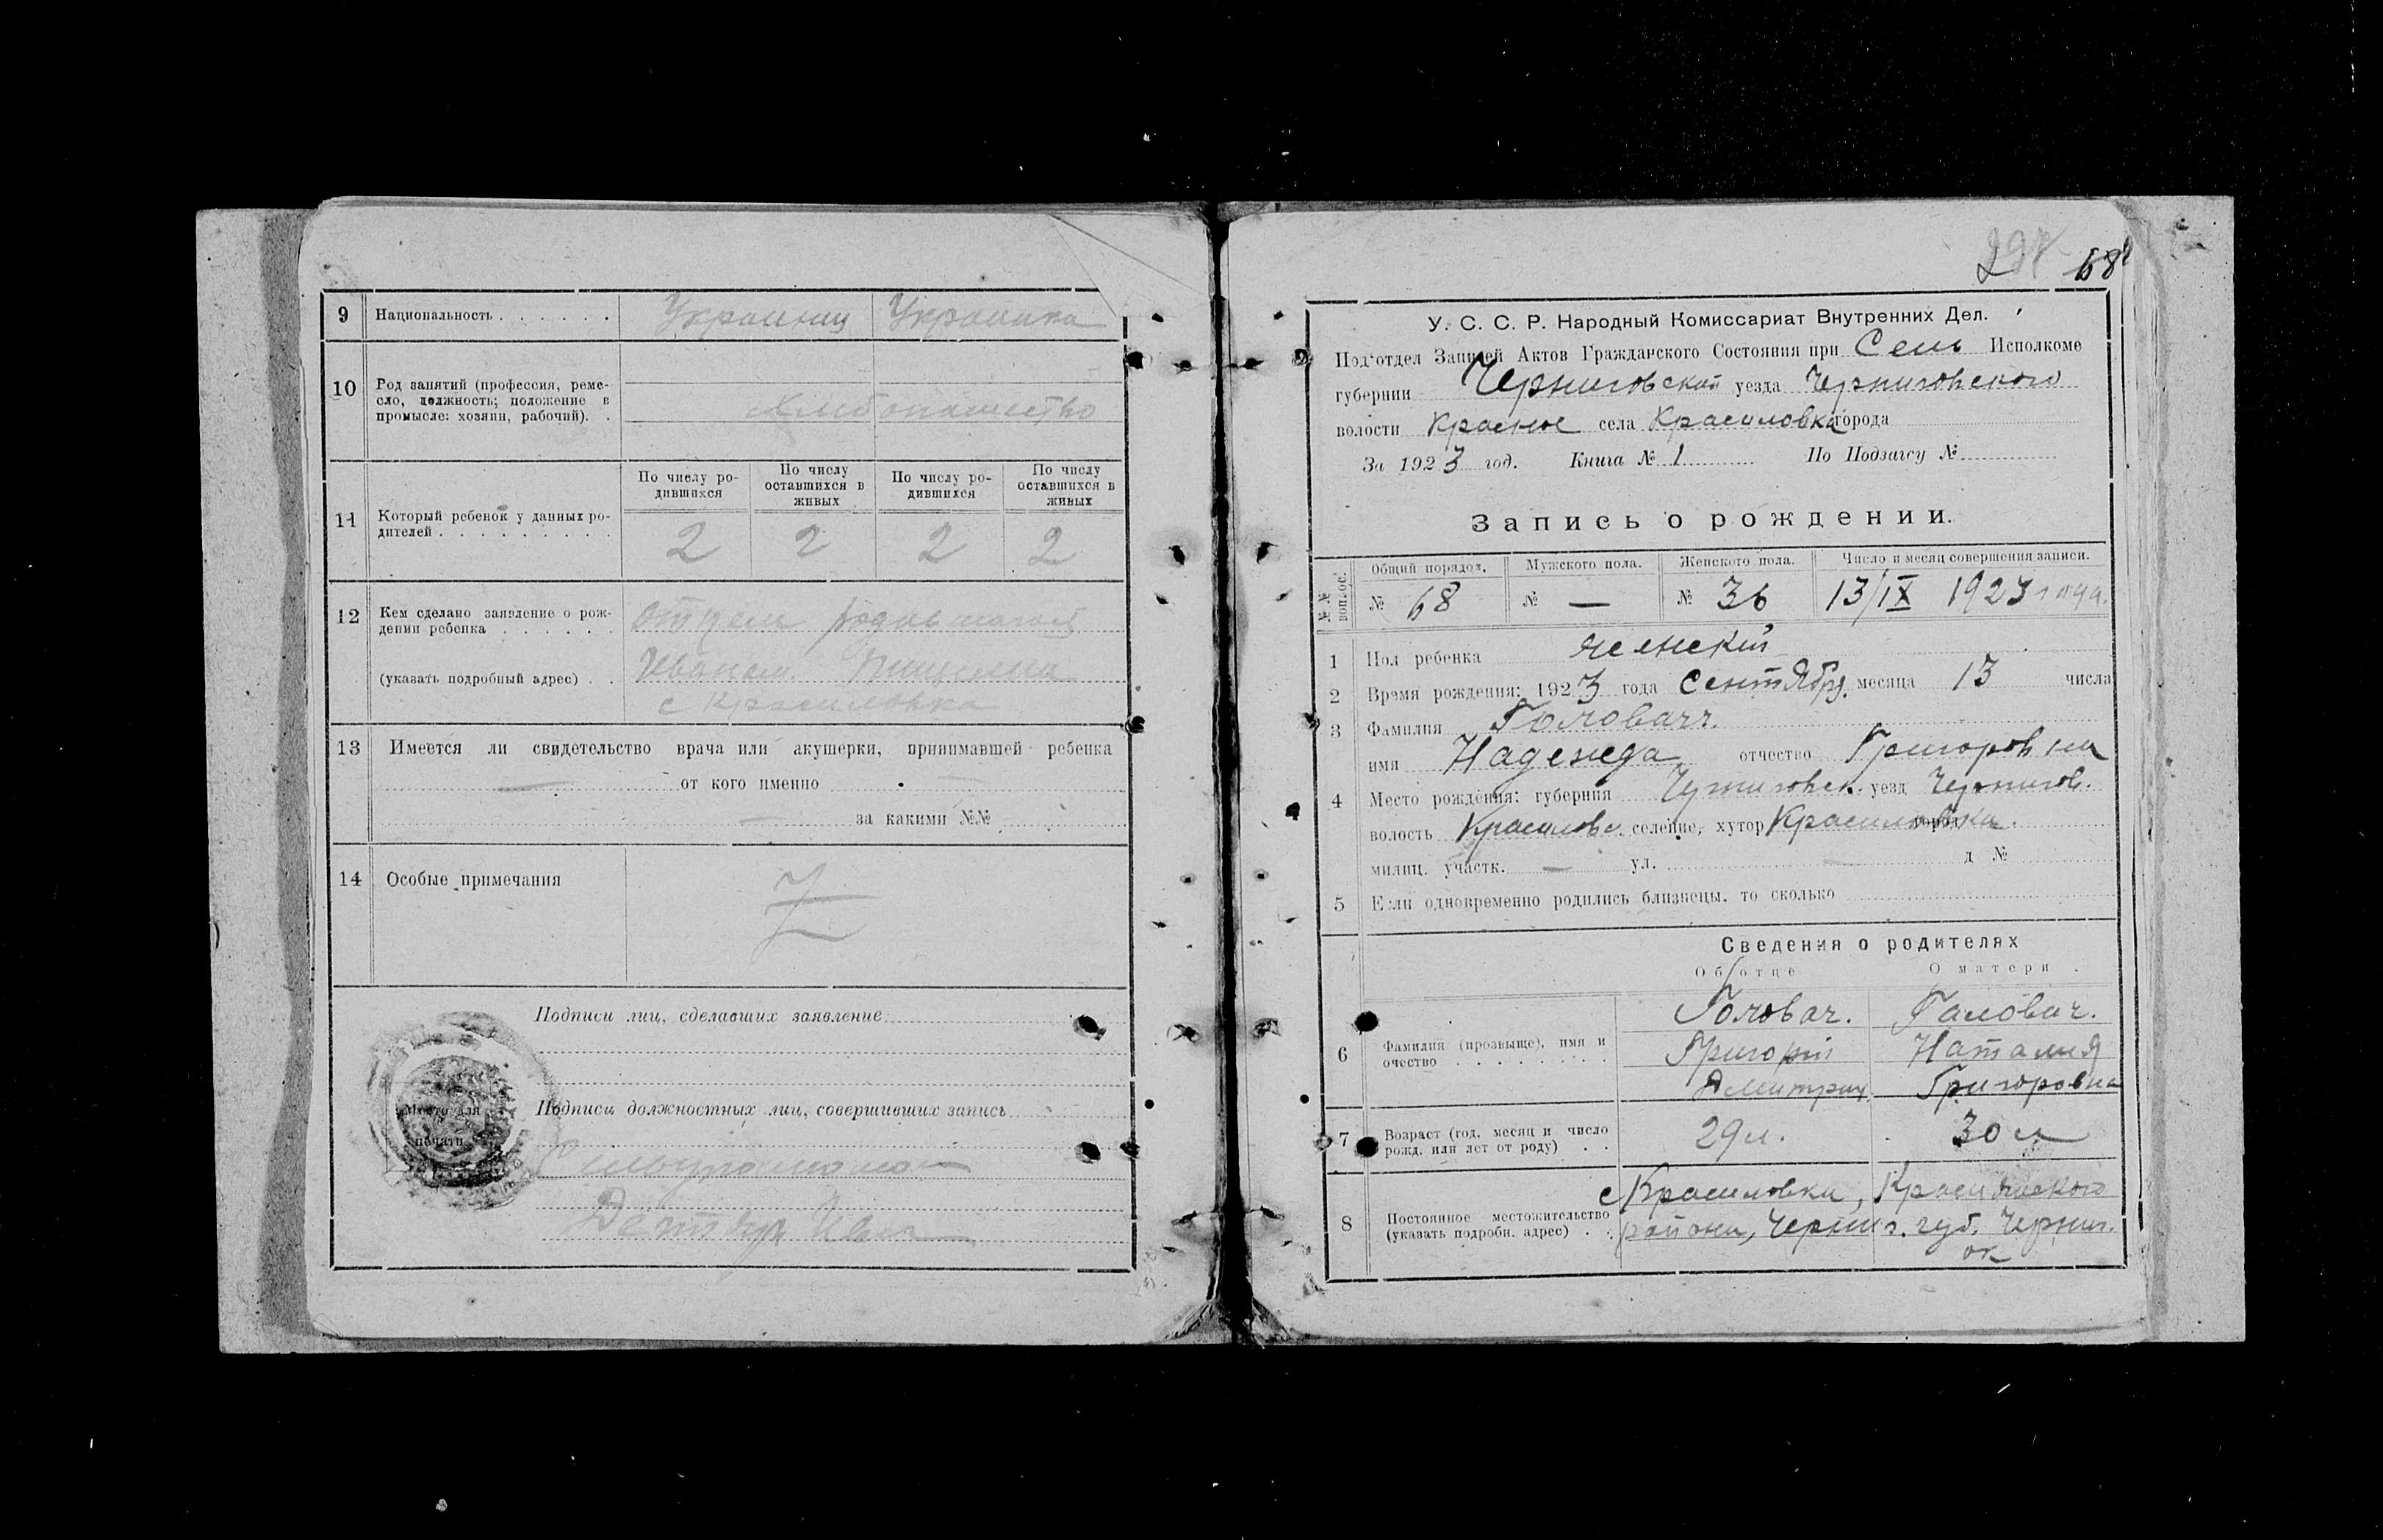 9 Национальность . . . . . . Украинец Украинка
10 Род занятий (профессия, реме-
сло, должность; положение в
промысле: хозяин, рабочий). .
Хлебопашество
11 Который ребенок у данных ро-
дителей . . . . . . . . .
По числу ро-
дившихся
По числу
оставшихся в
живых
По числу ро-
дившихся
По числу
оставшихся в
живых
2 2 2 2
12 Кем сделано заявление о рож-
дении ребенка . . . . . .
(указать подробный адрес) . .
Иваном
с Красиловка
13 Имеется ли свидетельство врача или акушерки, принимавшей ребенка
— от кого именно
— за какими №№
14 Особые примечания
Подписи лиц, сделавших заявление
Место для
печати
Подписи должностных лиц, совершивших запись
68
У. С. С. Р. Народный Комиссариат Внутренних Дел.
Под'отдел Записей Актов Гражданского Состояния при Сель Исполкоме
губернии Черниговской уезда Черниговского
волости Красное села Красиловка города
За 1923 год. Книга № 1 По Подзагсу №
Запись о рождении.
№№ вопрос.
Общий порядов. Мужского пола. Женского пола. Число и месяц совершения записи.
№ 68 № — № 36 13/IX 1923 года.
1 Пол ребенка женский
2 Время рождения: 1923 года Сентября месяца 13 числа
3 Фамилия Головач.
имя Надежда отчество Григоровна
4 Место рождения: губерния Черниговск. уезд Чернигов.
волость Красиловс селение, хутор Красиловка. город
милиц. участк. — ул. — д №
5 Если одновременно родились близнецы, то сколько
Сведения о родителях
Об отце О матери
6 Фамилия (прозвыще), имя и
очество . . . . . . .
Головач. Галовач.
Григорий Наталия
Дмитрич Григоровна
7 Возраст (год, месяц и число
рожд. или лет от роду) . .
29 л. 30 л
8 Постоянное местожительство
(указать подробн. адрес) . .
с Красиловка, Красилвского
района, Черниг. губ. Черниг.
ок